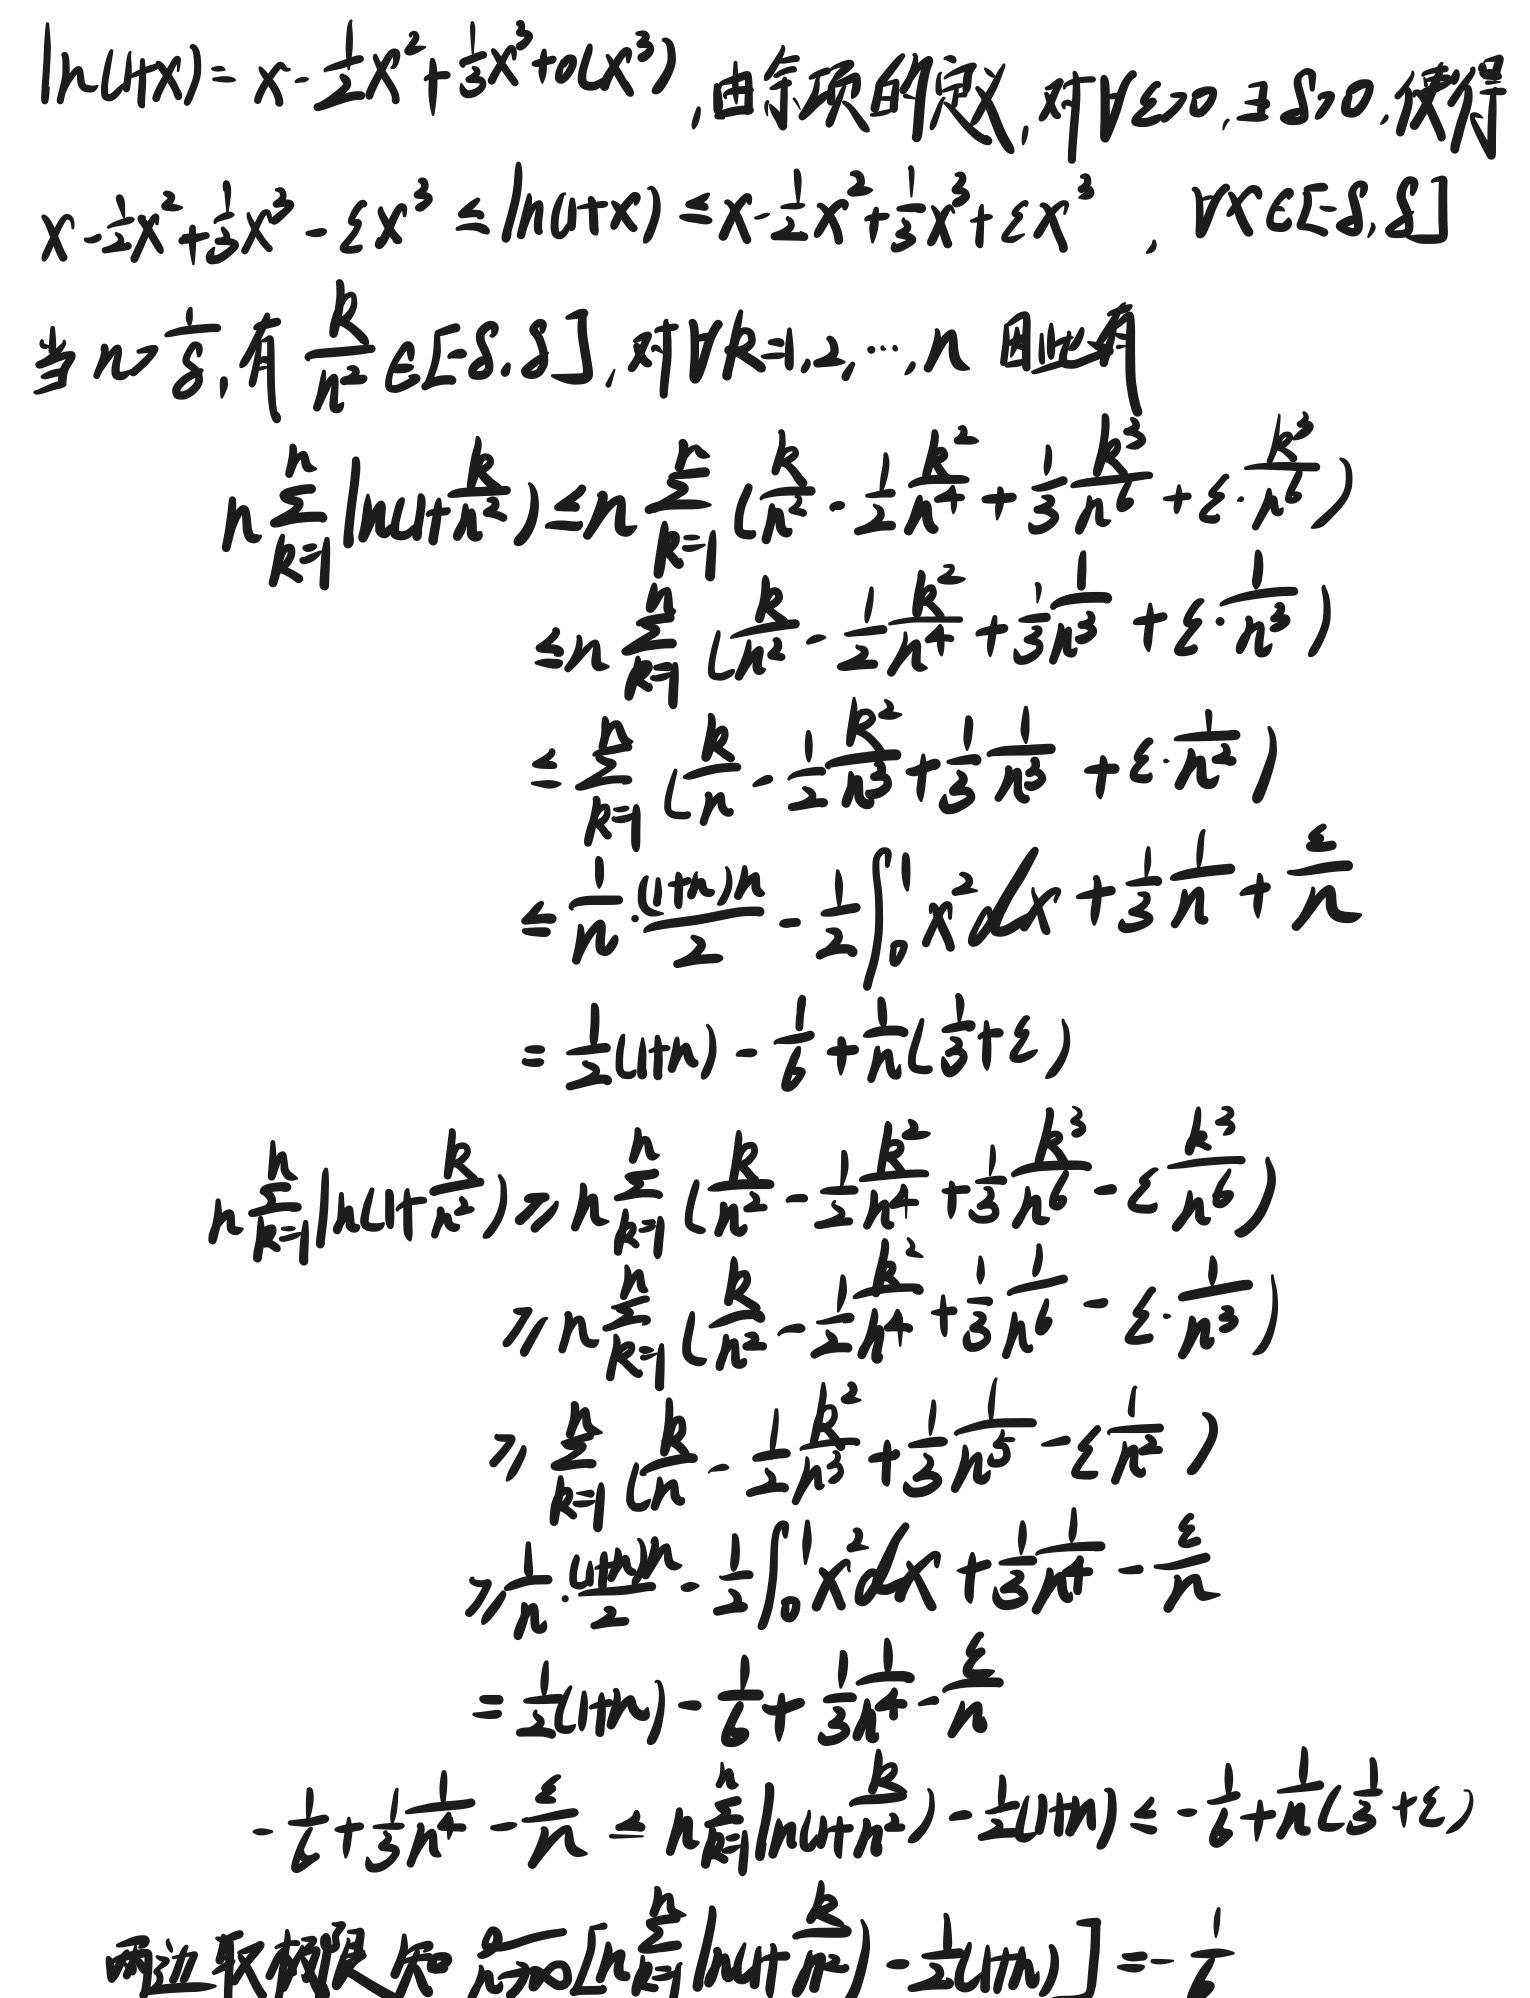 ln(1+x) = x - \frac{1}{2}x^2 + \frac{1}{3}x^3 + o(x^3), 由余项的定义, 对∀ε>0, ∃δ>0, 使得
x - \frac{1}{2}x^2 + \frac{1}{3}x^3 - εx^3 ≤ ln(1+x) ≤ x - \frac{1}{2}x^2 + \frac{1}{3}x^3 + εx^3 , ∀x∈[-δ,δ]
当 n > \frac{1}{δ}, 有 \frac{k}{n^2} ∈ [-δ,δ], 对∀k=1,2,…,n 因此有
n\sum_{k=1}^{n} ln(1+\frac{k}{n^2}) ≤ n\sum_{k=1}^{n} (\frac{k}{n^2} - \frac{1}{2}\frac{k^2}{n^4} + \frac{1}{3}\frac{k^3}{n^6} + ε·\frac{k^3}{n^6})
≤ n\sum_{k=1}^{n} (\frac{k}{n^2} - \frac{1}{2}\frac{k^2}{n^4} + \frac{1}{3}\frac{1}{n^3} + ε·\frac{1}{n^3})
≤ \sum_{k=1}^{n} (\frac{k}{n} - \frac{1}{2}\frac{k^2}{n^3} + \frac{1}{3}\frac{1}{n^3} + ε·\frac{1}{n^2})
≤ \frac{1}{n}·\frac{(1+n)n}{2} - \frac{1}{2}\int_0^1 x^2dx + \frac{1}{3}\frac{1}{n} + \frac{ε}{n}
= \frac{1}{2}(1+n) - \frac{1}{6} + \frac{1}{n}(\frac{1}{3}+ε)
n\sum_{k=1}^{n} ln(1+\frac{k}{n^2}) ≥ n\sum_{k=1}^{n} (\frac{k}{n^2} - \frac{1}{2}\frac{k^2}{n^4} + \frac{1}{3}\frac{k^3}{n^6} - ε\frac{k^3}{n^6})
≥ n\sum_{k=1}^{n} (\frac{k}{n^2} - \frac{1}{2}\frac{k^2}{n^4} + \frac{1}{3}\frac{1}{n^6} - ε·\frac{1}{n^3})
≥ \sum_{k=1}^{n} (\frac{k}{n} - \frac{1}{2}\frac{k^2}{n^3} + \frac{1}{3}\frac{1}{n^5} - ε\frac{1}{n^2})
≥ \frac{1}{n}·\frac{(1+n)n}{2} - \frac{1}{2}\int_0^1 x^2dx + \frac{1}{3}\frac{1}{n^4} - \frac{ε}{n}
= \frac{1}{2}(1+n) - \frac{1}{6} + \frac{1}{3}\frac{1}{n^4} - \frac{ε}{n}
-\frac{1}{6} + \frac{1}{3}\frac{1}{n^4} - \frac{ε}{n} ≤ n\sum_{k=1}^{n} ln(1+\frac{k}{n^2}) - \frac{1}{2}(1+n) ≤ -\frac{1}{6} + \frac{1}{n}(\frac{1}{3}+ε)
两边取极限知 n→∞ [n\sum_{k=1}^{n} ln(1+\frac{k}{n^2}) - \frac{1}{2}(1+n)] = -\frac{1}{6}